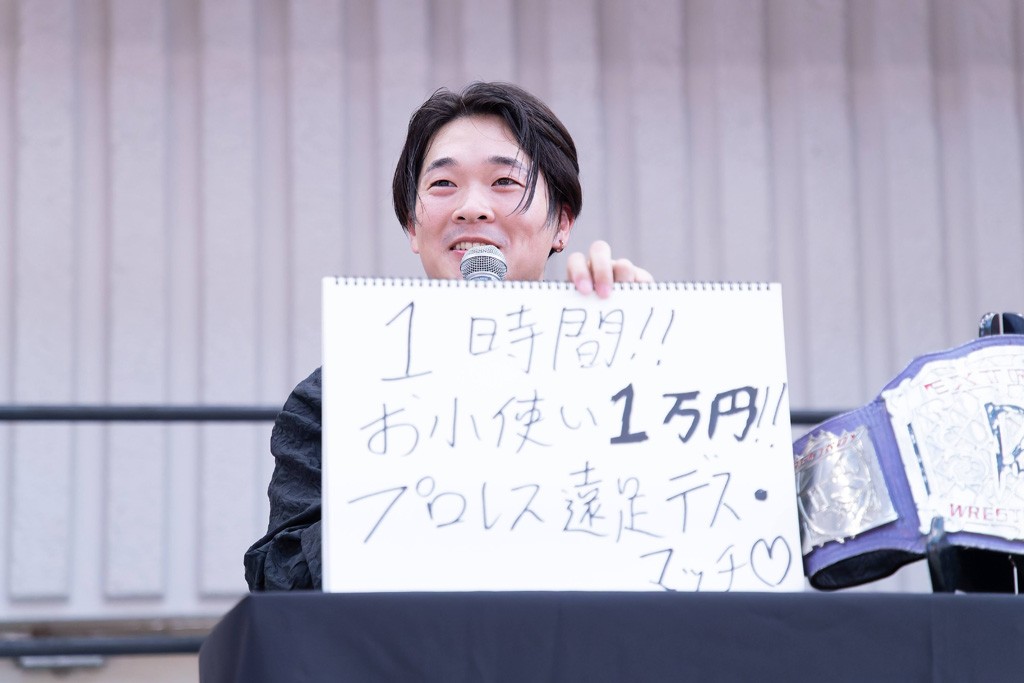 1時間!!
お小使い1万円!!
プロレス遠足デス・
マッチ♡
WREST